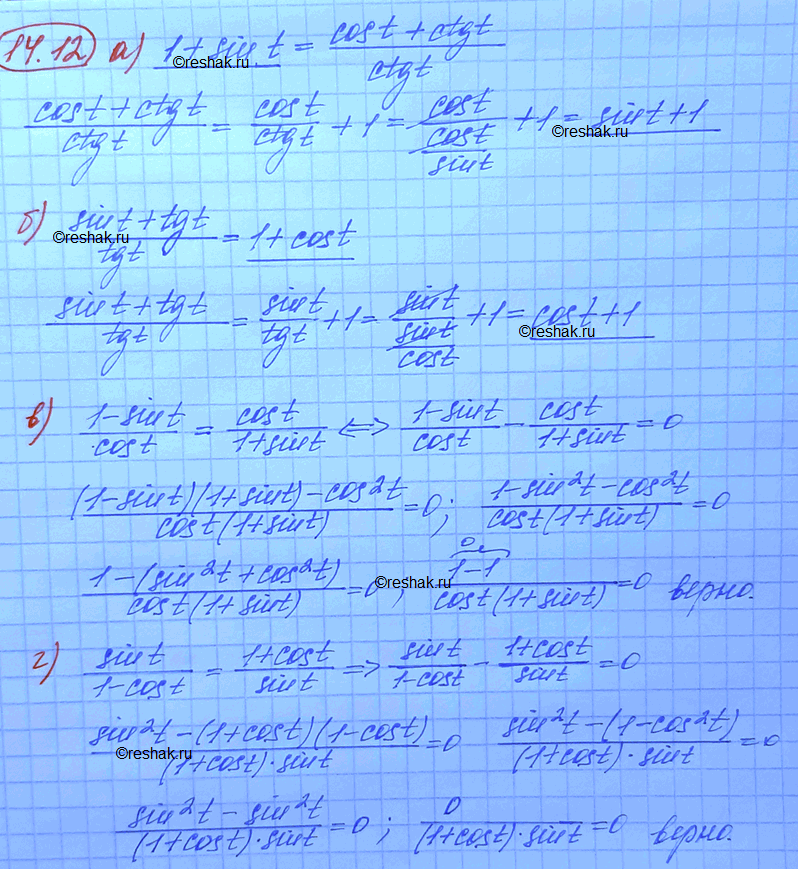 14.12 а) 1 + sin t = (cos t + ctg t)/(ctg t)
©reshak.ru
(cos t + ctg t)/(ctg t) = (cos t)/(ctg t) + 1 = (cos t)/((cos t)/(sin t)) + 1 = sin t + 1
©reshak.ru
б) (sin t + tg t)/(tg t) = 1 + cos t
©reshak.ru
(sin t + tg t)/(tg t) = (sin t)/(tg t) + 1 = (sin t)/((sin t)/(cos t)) + 1 = cos t + 1
©reshak.ru
в) (1 - sin t)/(cos t) = (cos t)/(1 + sin t) <=> (1 - sin t)/(cos t) - (cos t)/(1 + sin t) = 0
((1 - sin t)(1 + sin t) - cos²t)/(cos t(1 + sin t)) = 0; (1 - sin²t - cos²t)/(cos t(1 + sin t)) = 0
0
(1 - (sin²t + cos²t))/(cos t(1 + sin t)) = 0; (1 - 1)/(cos t(1 + sin t)) = 0 верно.
©reshak.ru
г) (sin t)/(1 - cos t) = (1 + cos t)/(sin t) => (sin t)/(1 - cos t) - (1 + cos t)/(sin t) = 0
(sin²t - (1 + cos t)(1 - cos t))/((1 + cos t)·sin t) = 0 (sin²t - (1 - cos²t))/((1 + cos t)·sin t) = 0
©reshak.ru
(sin²t - sin²t)/((1 + cos t)·sin t) = 0; 0/((1 + cos t)·sin t) = 0 верно.